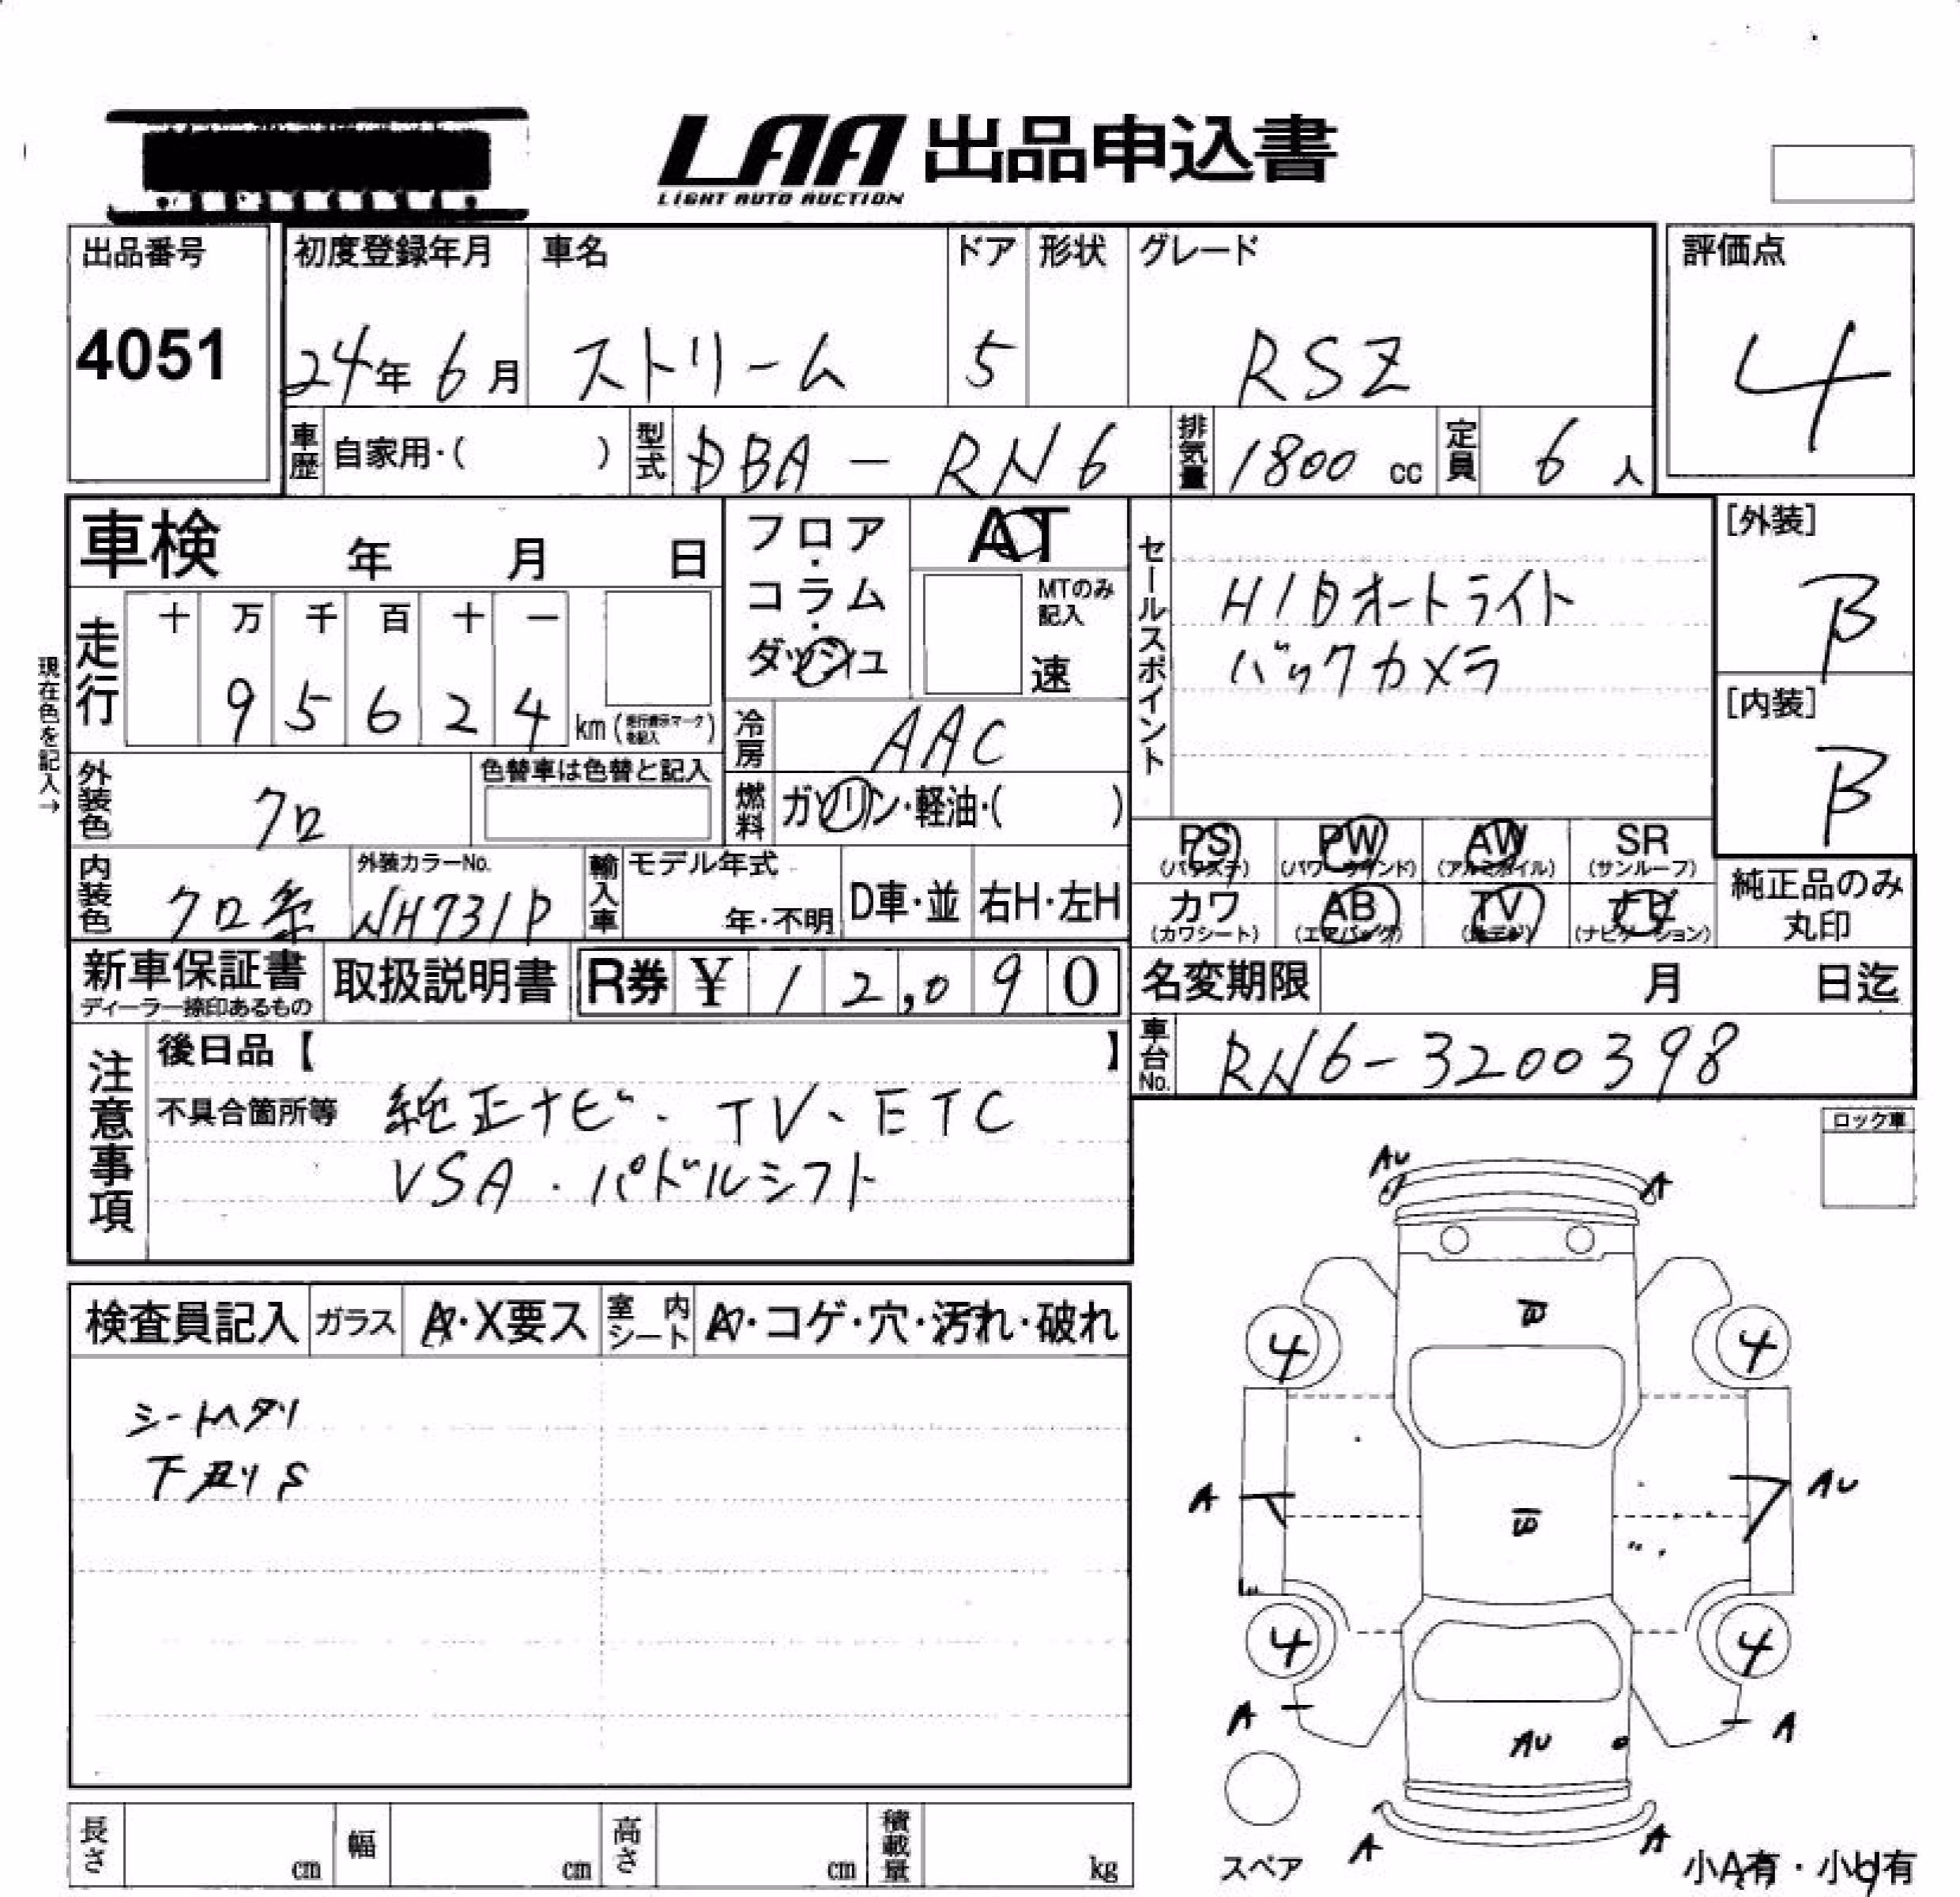 LAA 出品申込書
LIGHT AUTO AUCTION
出品番号
4051
初度登録年月 車名 ドア 形状 グレード
24年 6月 ストリーム 5 RSZ
評価点
4
車歴 自家用・( ) 型式 DBA-RN6 排気量 1800 cc 定員 6 人
車検 年 月 日
フロア・コラム・ダッシュ
AT
MTのみ記入
速
セールスポイント
HIDオートライト
バックカメラ
[外装]
B
[内装]
B
現在色を記入→
走行
十 万 千 百 十 一
9 5 6 2 4 km (走行表示マークを記入)
冷房 AAC
外装色 クロ
色替車は色替と記入
燃料 ガソリン・軽油・( )
PS (パワステ) PW (パワーウインド) AW (アルミホイル) SR (サンルーフ)
カワ (カワシート) AB (エアバッグ) TV (地デジ) ナビ (ナビゲーション)
純正品のみ丸印
内装色 クロ系
外装カラーNo. NH731P
輸入車 モデル年式 年・不明 D車・並 右H・左H
新車保証書
ディーラー捺印あるもの
取扱説明書
R券 ¥ 12,090
名変期限 月 日迄
車台No. RN6-3200398
注意事項
後日品【 】
不具合箇所等 純正ナビ・TV・ETC
VSA・パドルシフト
ロック車
検査員記入 ガラス A・X要ス 室内シート A・コゲ・穴・汚れ・破れ
シートヘタリ
下廻りS
AU A
B
4 4
A B AU
4 4
A AU A
A A
スペア
小A有・小U有
長さ cm 幅 cm 高さ cm 積載量 kg